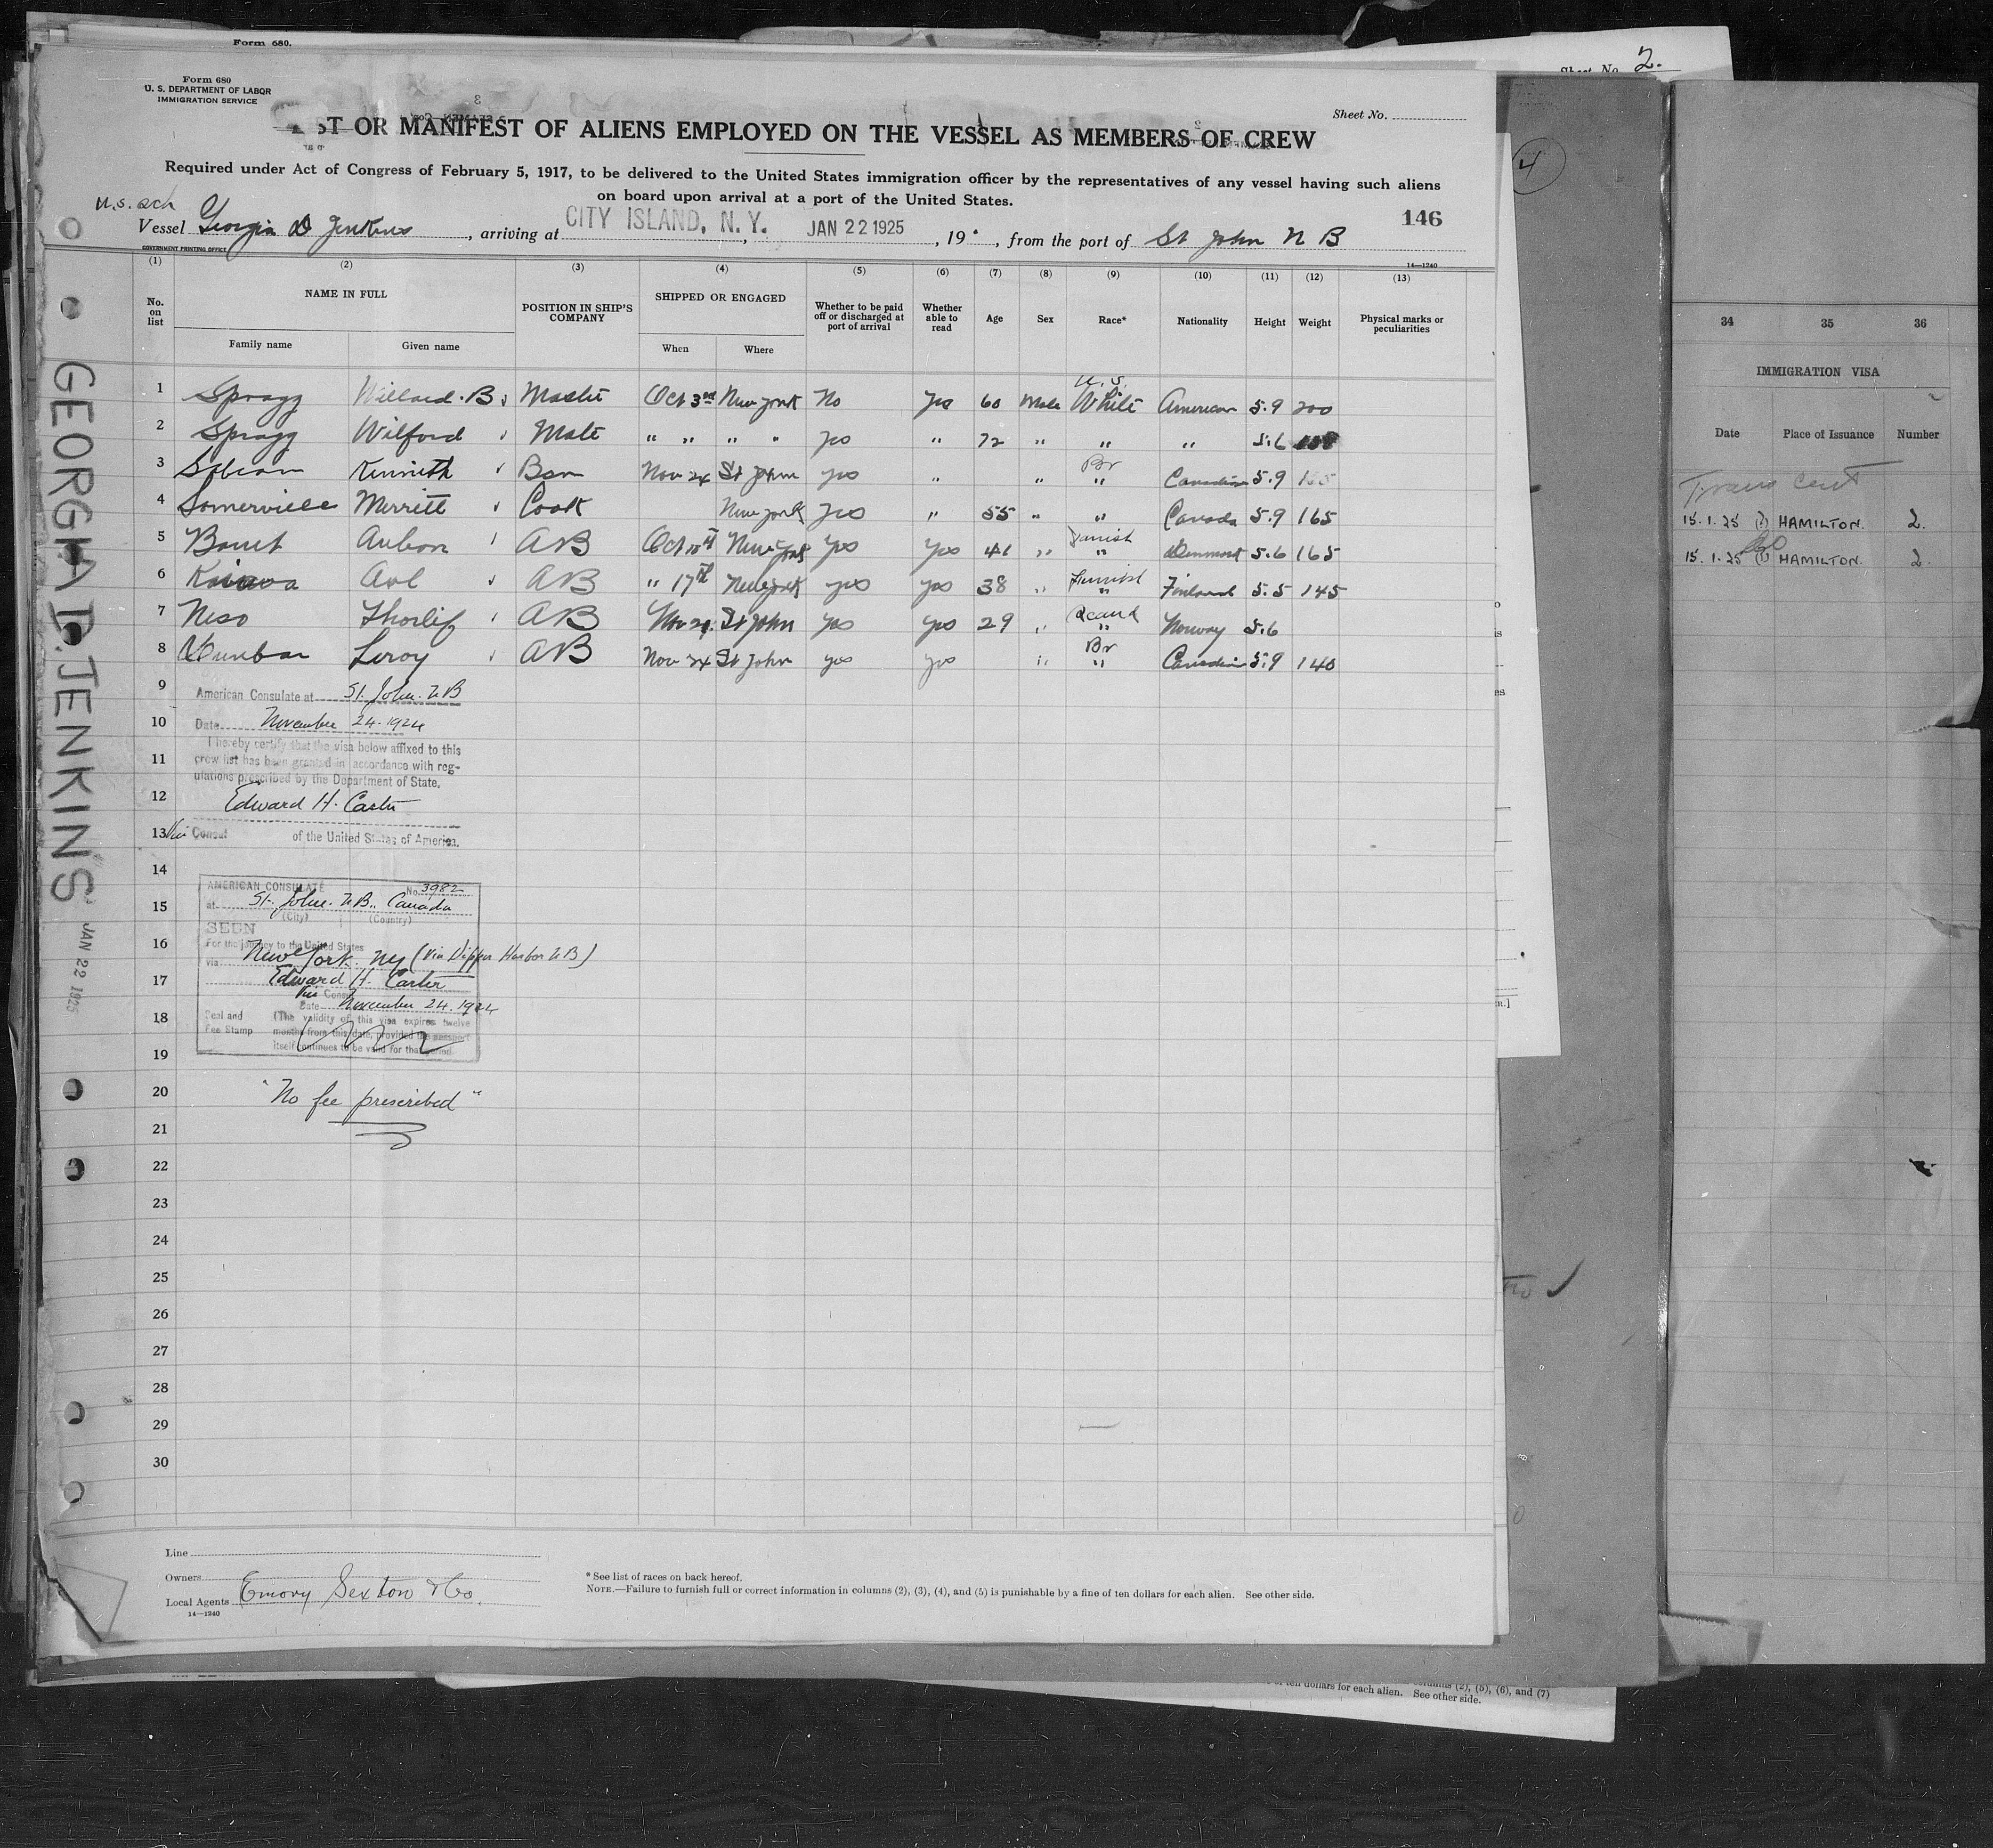 Form 680.
Form 680
U. S. DEPARTMENT OF LABOR
IMMIGRATION SERVICE
Sheet No. 2.
Sheet No.
ST OR MANIFEST OF ALIENS EMPLOYED ON THE VESSEL AS MEMBERS OF CREW
Required under Act of Congress of February 5, 1917, to be delivered to the United States immigration officer by the representatives of any vessel having such aliens
on board upon arrival at a port of the United States.
4
146
U.S. Sch
Vessel Georgia D Jenkins, arriving at CITY ISLAND, N. Y., JAN 22 1925, 19 , from the port of St John N B
GOVERNMENT PRINTING OFFICE
14—1240
(1) (2) (3) (4) (5) (6) (7) (8) (9) (10) (11) (12) (13)
No. on list NAME IN FULL POSITION IN SHIP'S COMPANY SHIPPED OR ENGAGED Whether to be paid off or discharged at port of arrival Whether able to read Age Sex Race* Nationality Height Weight Physical marks or peculiarities
Family name Given name When Where
U.S.
1 Spragg Willard. B Master Oct 3rd New York No yes 60 Male White American 5.9 200
2 Spragg Wilford Mate " " " " yes " 72 " " " 5.6
Br
3 Kenneth Bsn Nov 24 St John yes " " " Canadian 5.9
4 Somerville Merritt Cook New York yes " 55 " " Canada 5.9 165
Danish
5 AB Oct New York yes yes 41 " " Denmark 5.6 165
Finnish
6 AB " 17th New York yes yes 38 " " Finland 5.5 145
Scand
7 Neso Thorlif AB Nov St John yes yes 29 " " Norway 5.6
Br
8 Dunbar Leroy AB Nov 24 St John yes yes " " Canadian 5.9 140
9 American Consulate at St. John. N B
10 Date November 24. 1924
I hereby certify that the visa below affixed to this
11 crew list has been granted in accordance with reg-
ulations prescribed by the Department of State.
12 Edward H. Carter
13 Vice Consul of the United States of America.
14
AMERICAN CONSULATE No. 3982
15 at St. John. N.B. Canada
(City) (Country)
SEEN
16 For the journey to the United States
via New York. NY (via Dipper Harbor N B)
17 Edward H. Carter
Vice Consul
Date November 24. 1924
18 Seal and Fee Stamp (The validity of this visa expires twelve
months from this date, provided the passport
19 itself continues to be valid for that period
20 "No fee prescribed"
21
22
23
24
25
26
27
28
29
30
Line
Owners
Local Agents Emory Sexton & Co.
14—1240
* See list of races on back hereof.
NOTE.—Failure to furnish full or correct information in columns (2), (3), (4), and (5) is punishable by a fine of ten dollars for each alien. See other side.
GEORGIA D. JENKINS
JAN 22 1925
34 35 36
IMMIGRATION VISA
Date Place of Issuance Number
Trans cert
15.1.25 HAMILTON. 2.
15.1.25 HAMILTON. 2.
of ten dollars for each alien. See other side.
columns (2), (5), (6), and (7)